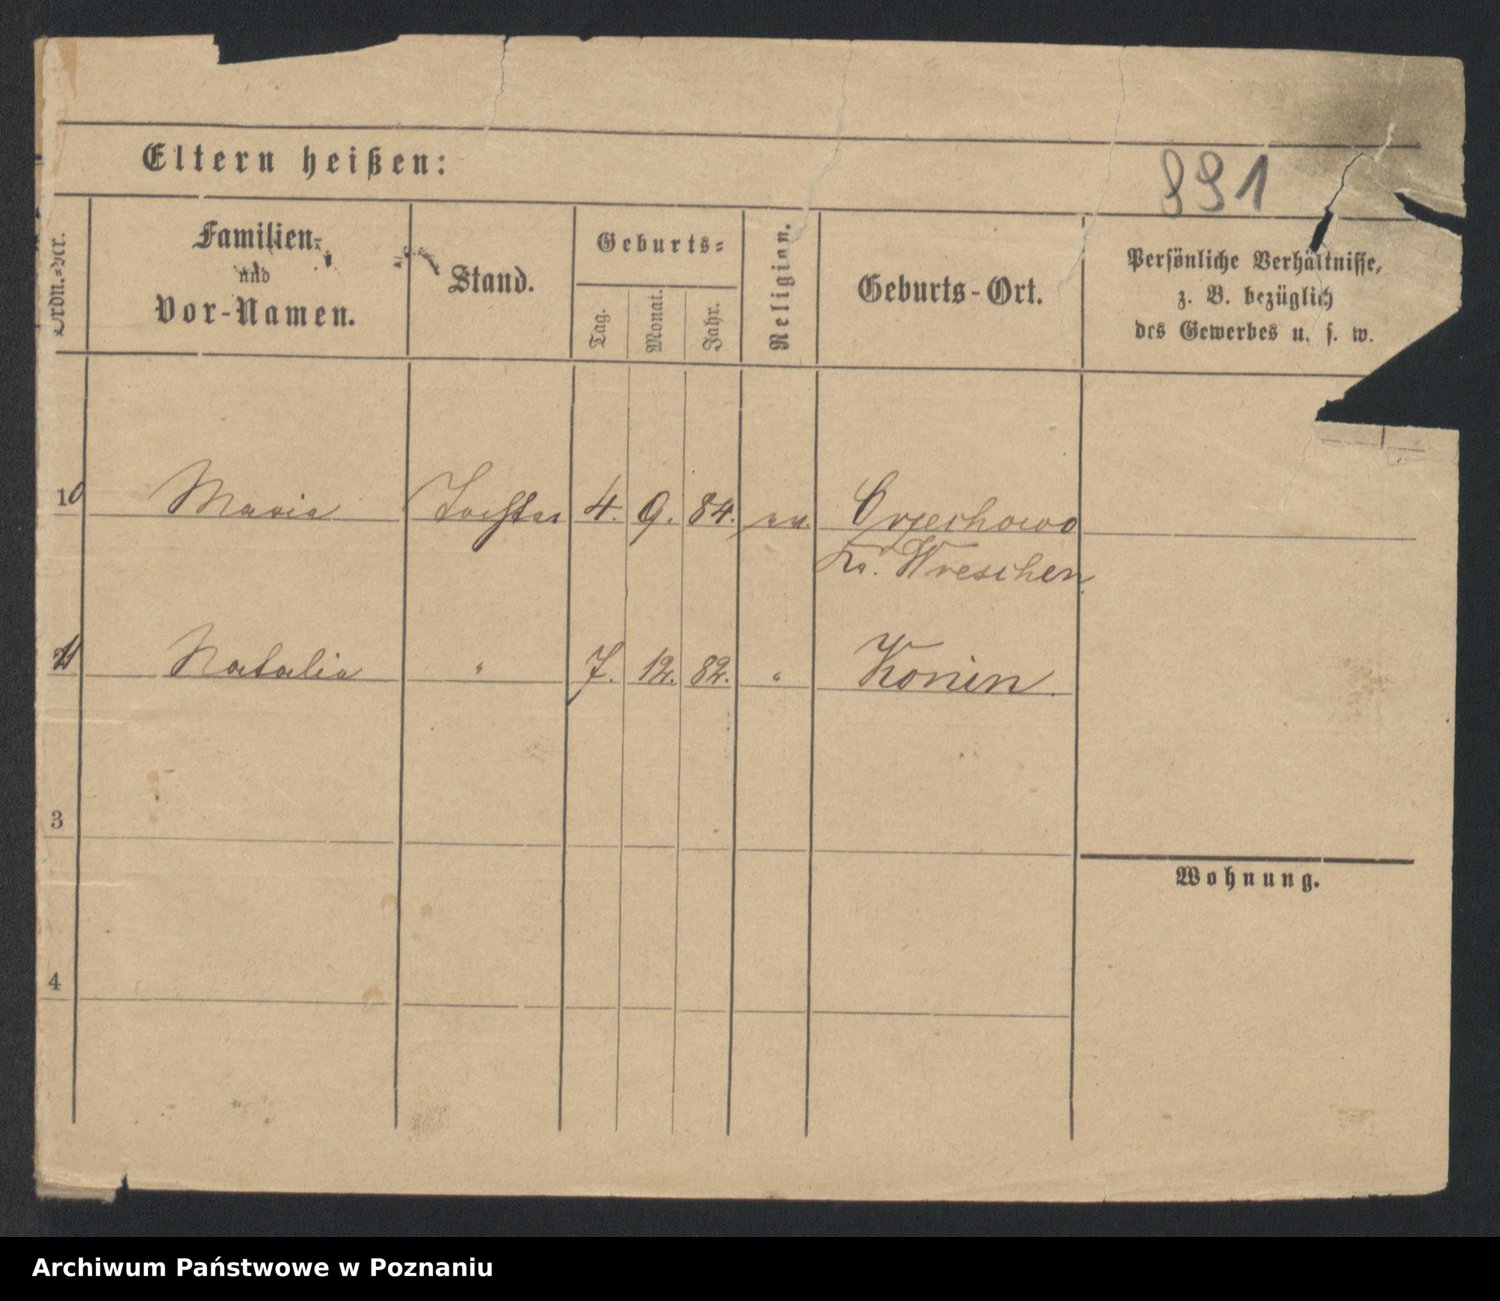 Eltern heißen:
891
Ordn.-Nr.
Familien-
und
Vor-Namen.
Stand.
Geburts-
Tag.
Monat.
Jahr.
Religion.
Geburts-Ort.
Persönliche Verhältnisse,
z. B. bezüglich
des Gewerbes u. s. w.
10 Maria Tochter 4. 9. 84. ev. Orzechowo
Kr. Wreschen
11 Natalia " 7. 12. 82. " Konin.
3
Wohnung.
4
Archiwum Państwowe w Poznaniu